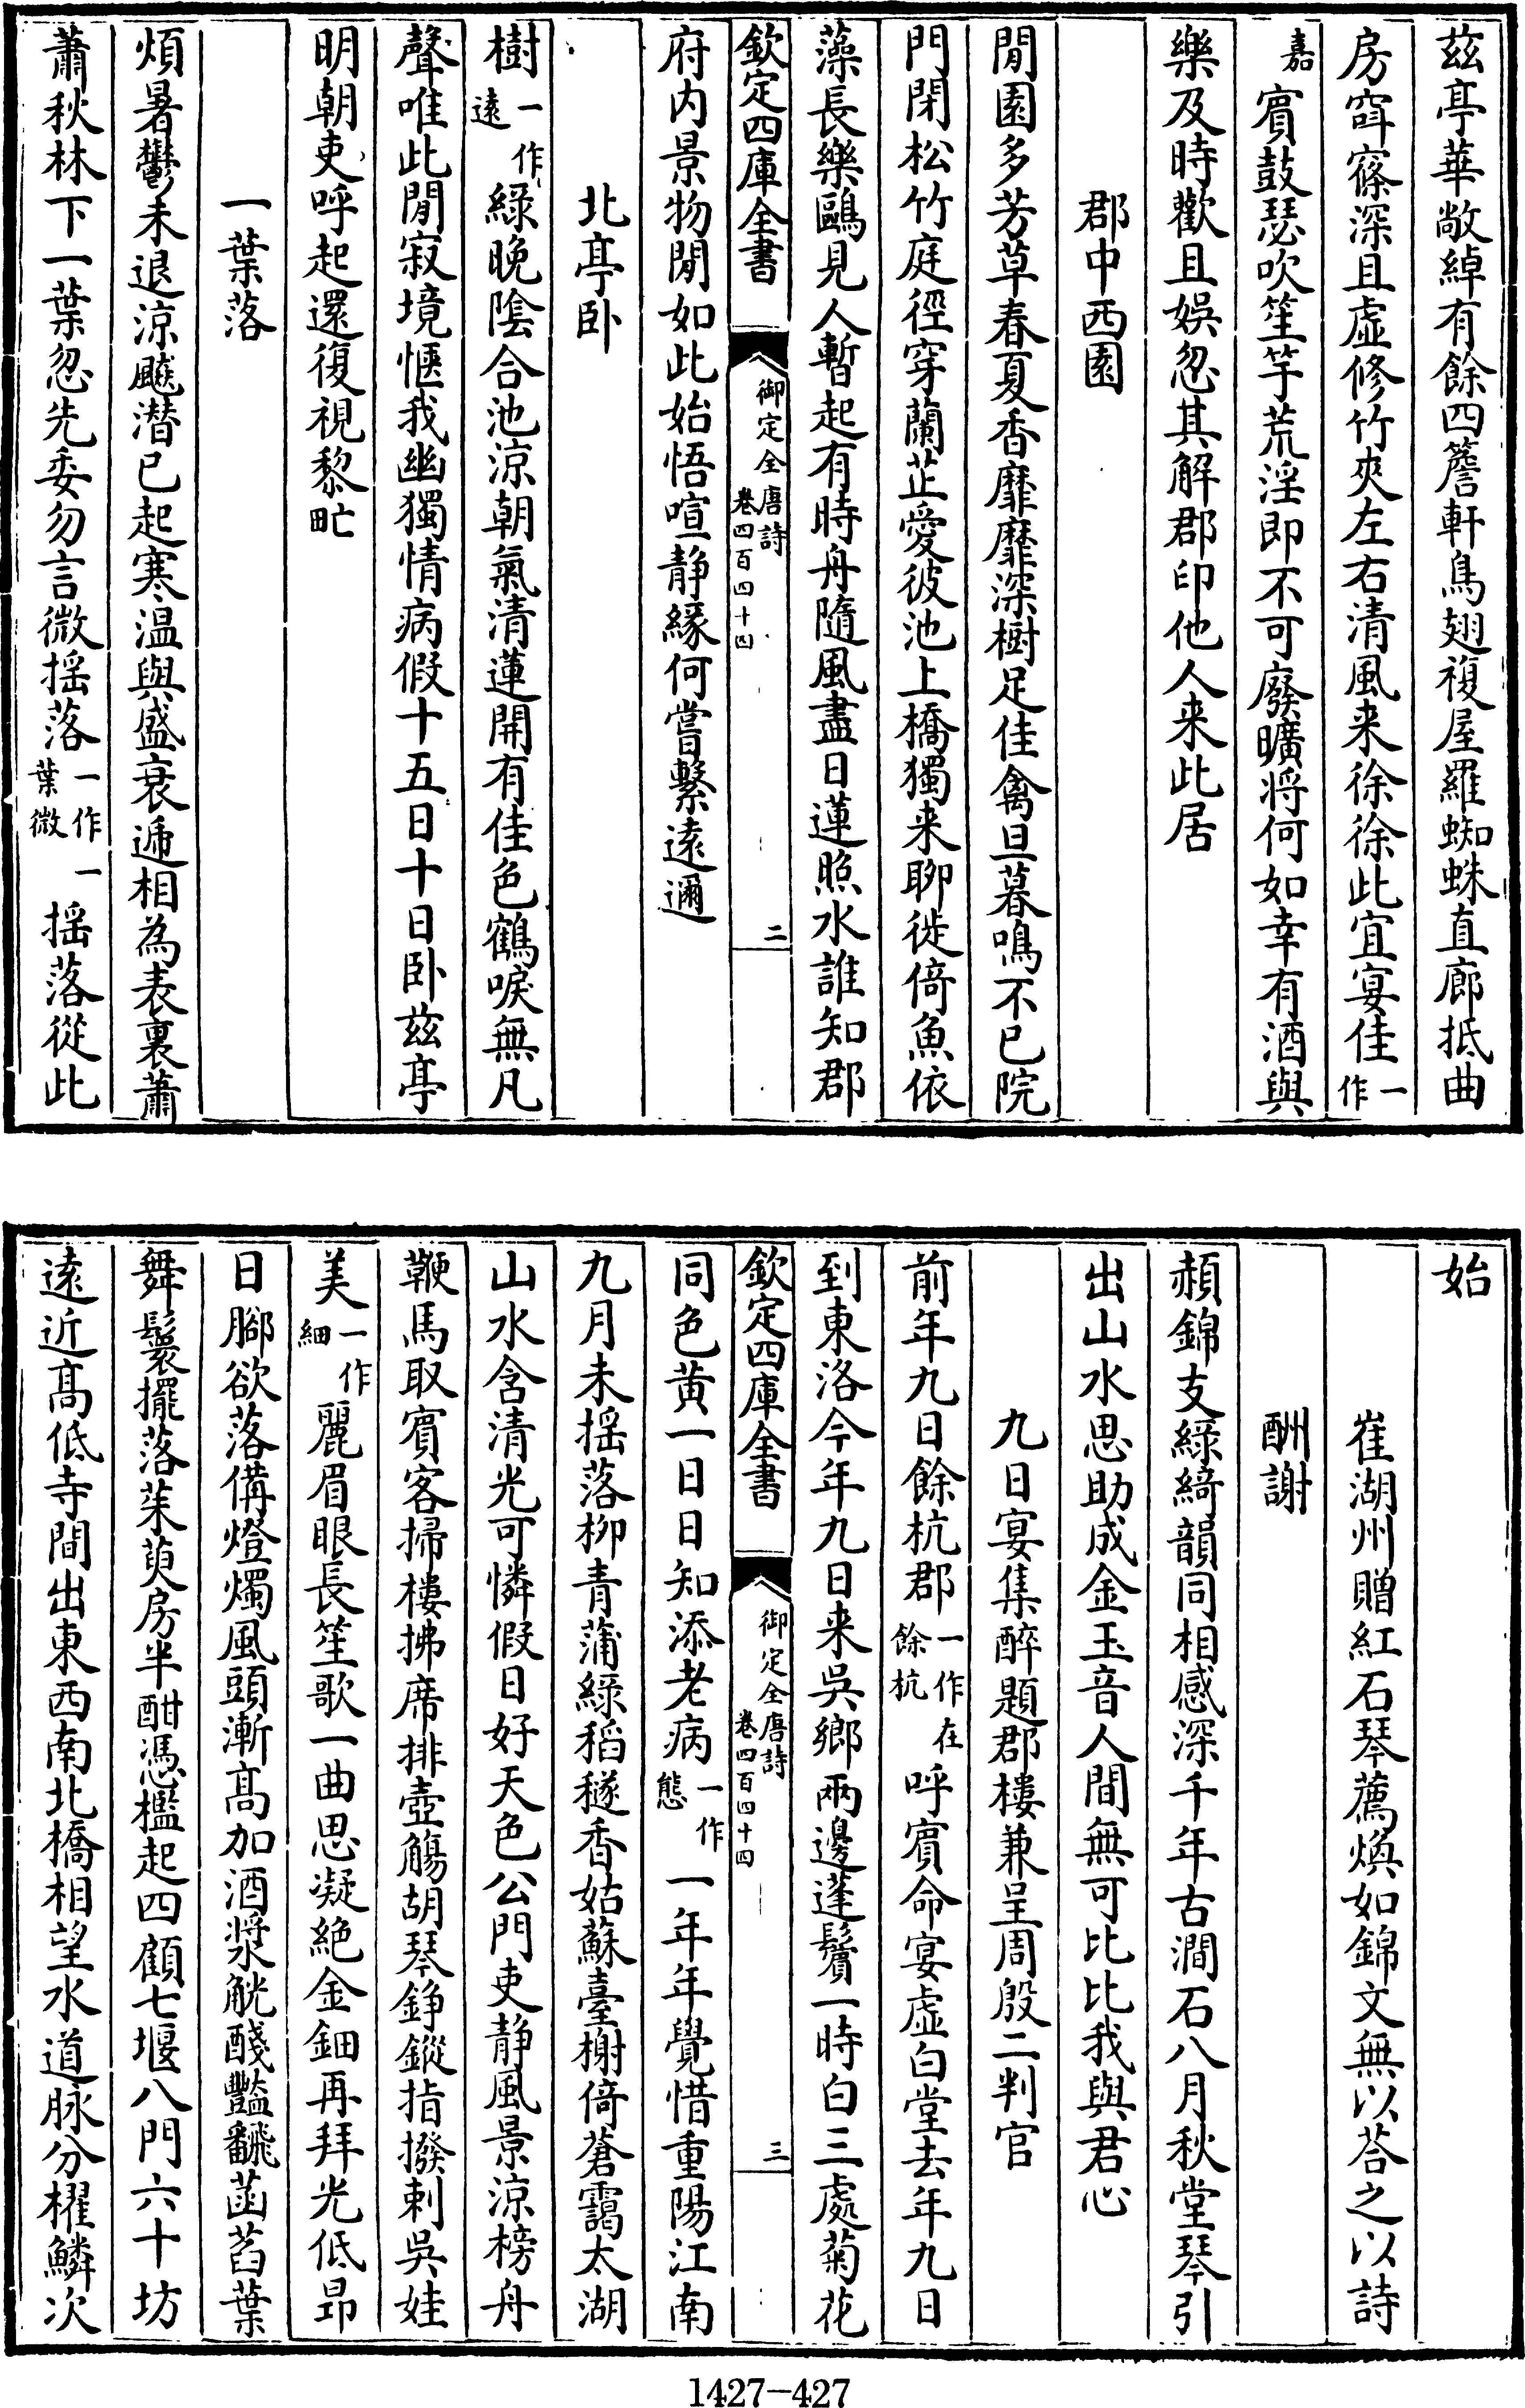 茲亭華敞綽有餘四簷軒鳥翅複屋羅蜘蛛直廊抵曲
房窱窱深且虛修竹夾左右清風来徐徐此宜宴佳一作
嘉賓鼓瑟吹笙竽荒淫即不可廢曠將何如幸有酒與
樂及時歡且娛忽其解郡印他人来此居
郡中西園
閒園多芳草春夏香靡靡深樹足佳禽旦暮鳴不已院
門閉松竹庭徑穿蘭芷愛彼池上橋獨来聊徙倚魚依
藻長樂鷗見人暫起有時舟隨風盡日蓮照水誰知郡
欽定四庫全書 御定全唐詩 卷四百四十四 二
府内景物閒如此始悟喧静緣何嘗繫遠邇
北亭卧
樹一作遠緑晚陰合池涼朝氣清蓮開有佳色鶴唳無凡
聲唯此閒寂境愜我幽獨情病假十五日十日卧茲亭
明朝吏呼起還復視黎甿
一葉落
煩暑鬱未退涼飈潜已起寒温與盛衰遞相為表裏蕭
蕭秋林下一葉忽先委勿言微揺落一作一葉微揺落從此
始
崔湖州贈紅石琴薦煥如錦文無以荅之以詩
酬謝
赬錦支緑綺韻同相感深千年古澗石八月秋堂琴引
出山水思助成金玉音人間無可比比我與君心
九日宴集醉題郡樓兼呈周殷二判官
前年九日餘杭郡一作在餘杭呼賓命宴虛白堂去年九日
到東洛今年九日来吳鄉兩邊蓬鬢一時白三處菊花
欽定四庫全書 御定全唐詩 卷四百四十四 三
同色黄一日日知添老病一作態一年年覺惜重陽江南
九月未揺落柳青蒲緑稻穟香姑蘇臺榭倚蒼靄太湖
山水含清光可憐假日好天色公門吏静風景涼榜舟
鞭馬取賓客掃樓拂席排壺觴胡琴錚鏦指撥剌吳娃
美一作細麗眉眼長笙歌一曲思凝絶金鈿再拜光低昂
日脚欲落備燈燭風頭漸髙加酒漿觥醆豔翻菡萏葉
舞鬟擺落茱萸房半酣憑檻起四顧七堰八門六十坊
遠近髙低寺間出東西南北橋相望水道脉分櫂鱗次
1427-427